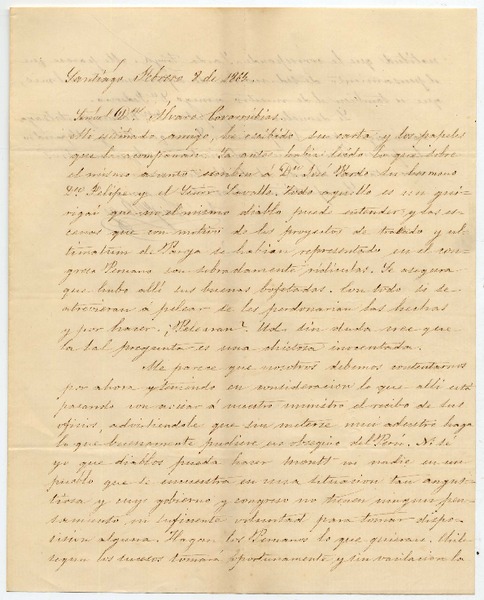 Santiago Febrero 8 de 1865.
Señor Dn. Alvaro Covarrubias.
Mi estimado amigo, he recibido su carta y los papeles
que la acompañan. Ya antes habia leido lo que sobre
el mismo asunto escribió á Dn. José Pardo su hermano
Dn. Felipe y el Señor Lavalle. Todo aquello es un
que ni el mismo diablo puede entender y las es-
cenas que con motivo de los proyectos de tratado y ul-
timatum de Pareja se habian representado en el con-
greso Peruano son sobradamente ridiculas. Se asegura
que hubo allí sus buenas bofetadas. Con todo si se
atrevieran á pelear se les perdonarian las hechas
y por hacer. ¿Pelearan? Ud. sin duda cree que
la tal pregunta es una chistosa inocentada.
Me parece que nosotros debemos contentarnos
por ahora y teniendo en consideracion lo que allí está
pasando con acusar á nuestro ministro el recibo de sus
oficios, advirtiendole que sin meterse muy adentro haga
lo que buenamente pudiere en obsequio del Perú. No sé
yo que diablos pueda hacer Montt ni nadie en un
pueblo que se encuentra en una situacion tan angus-
tiosa y cuyo gobierno y congreso no tienen ningun pen-
samiento ni suficiente voluntad para tomar dispo-
sicion alguna. Hagan los Peruanos lo que quieran. Chile
segun los sucesos tomará oportunamente y sin vacilacion la